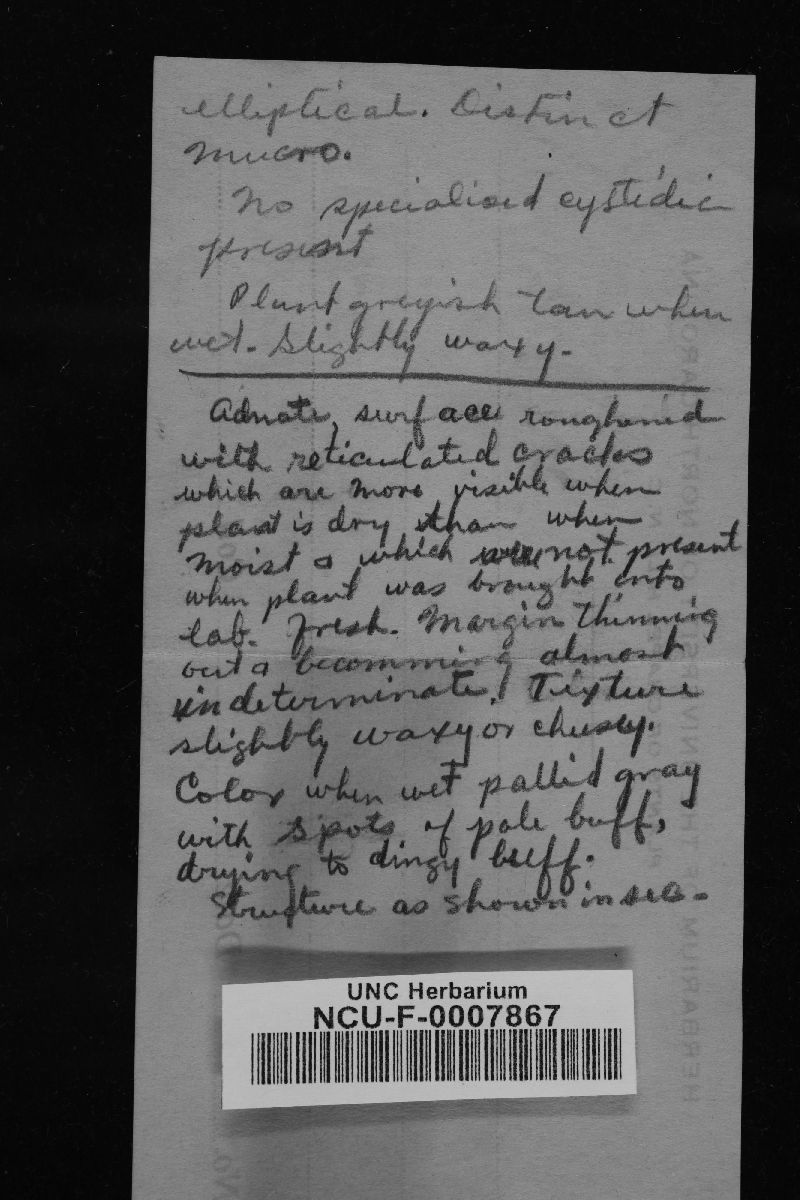 elliptical. Distinct
mucro.
No specialised cystidia
present
Plant greyish tan when
wet. Slightly waxy.
Adnate, surface roughened
with reticulated cracks
which are more visible when
plant is dry than when
moist & which were not present
when plant was brought into
lab. fresh. Margin thinning
out & becomming almost
indeterminate. Texture
slightly waxy or cheesy.
Color when wet pallid gray
with spots of pale buff,
drying to dingy buff.
Structure as shown in sec-
UNC Herbarium
NCU-F-0007867